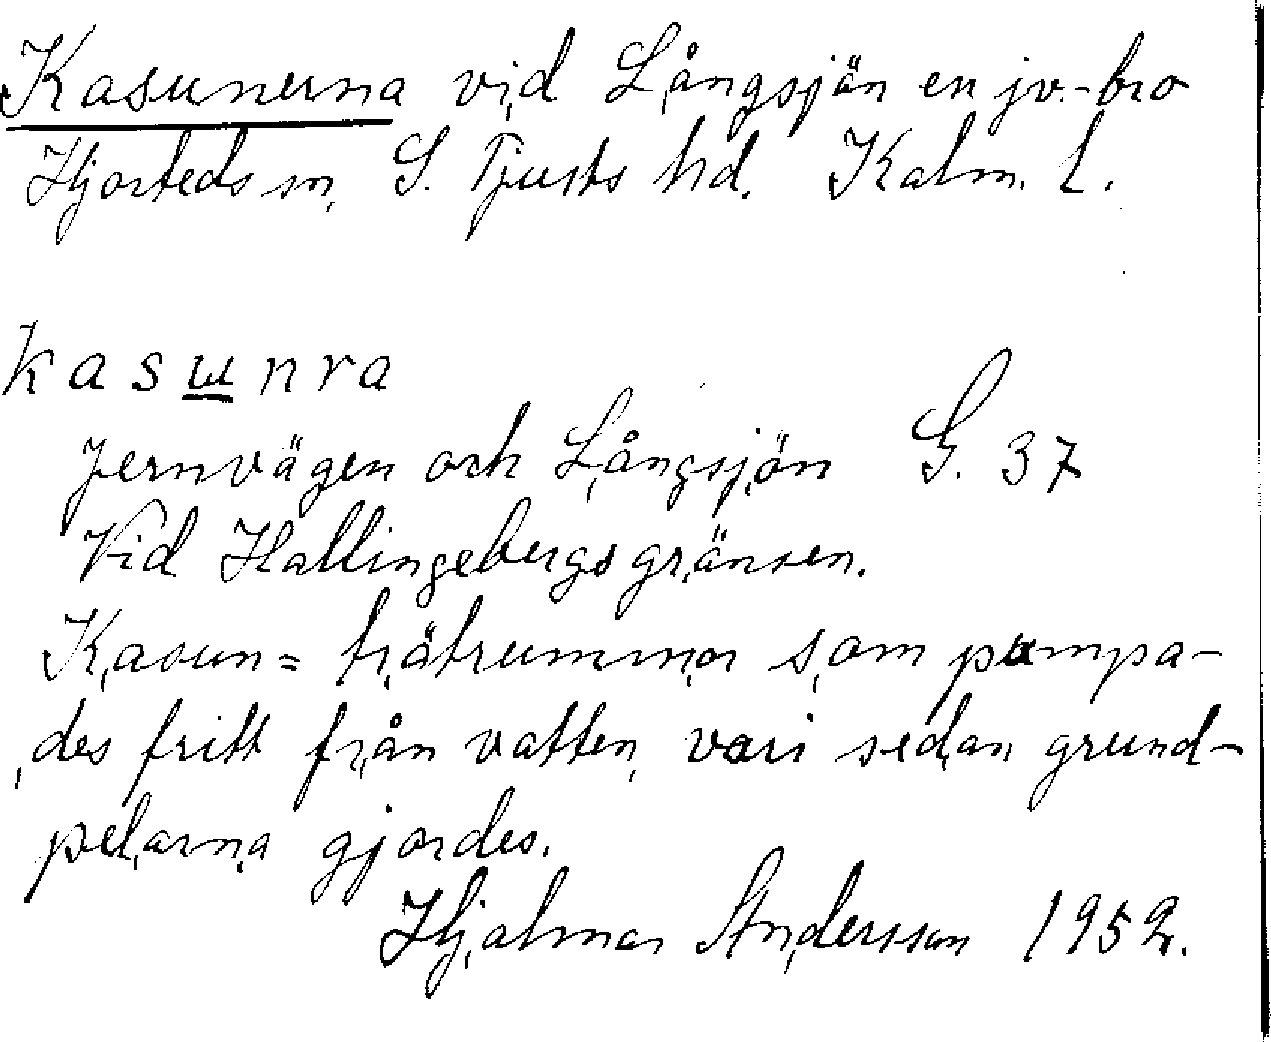 Kasunerna vid Långsjön en jv.-bro
Hjorteds sn, S. Tjusts hd. Kalm. l.
kasunra
Jernvägen och Långsjön G. 37
Vid Hallingebergsgränsen.
Kasun = trätrummor som pumpa-
des fritt från vatten, vari sedan grund-
pelarna gjordes.
Hjalmar Andersson 1952.